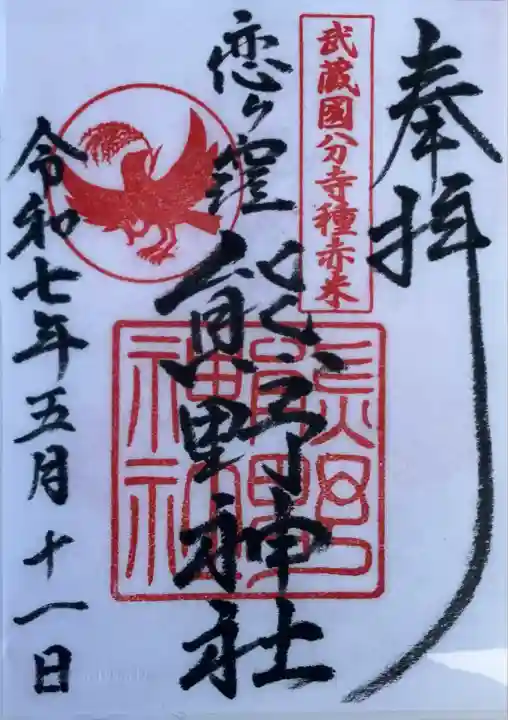 奉拝
武蔵国分寺種赤米
恋ヶ窪
熊野神社
熊野
神社
令和七年五月十一日